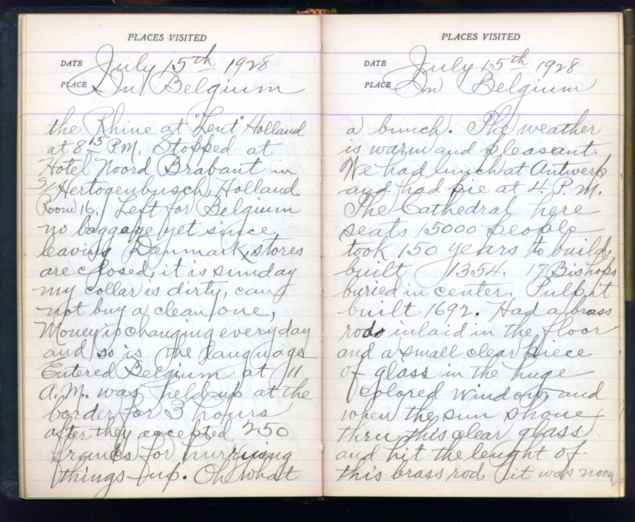 PLACES VISITED
DATE July 15th 1928
PLACE In Belgium
the Rhine at "Lent" Holland
at 8 15 P.M. Stopped at
Hotel Noord Brabant in
Hertogenbusch, Holland
Room 16. Left for Belgium
no baggage yet since
leaving Danmark, stores
are closed, it is sunday
my collar is dirty, can
not buy a clean one,
Money is changing everyday
and so is the language
Entered Belgium at 11
A.M. was held up at the
border for 3 hours
after they accepted 250
francs for hurrying
things up. Oh what
PLACES VISITED
DATE July 15th 1928
PLACE In Belgium
a bunch. The weather
is warm and pleasant.
We had lunch at Antwerp
and had pie at 4 P.M.
The Cathedral here
seats 15000 people
took 150 years to build,
built 1354. 17 Bishops
buried in center, Pulpit
built 1692. Had a brass
rod inlaid in the floor
and a small clear piece
of glass in the huge
colored window and
when the sun shone
thru this clear glass
and hit the lenght of
this brass rod it was noon